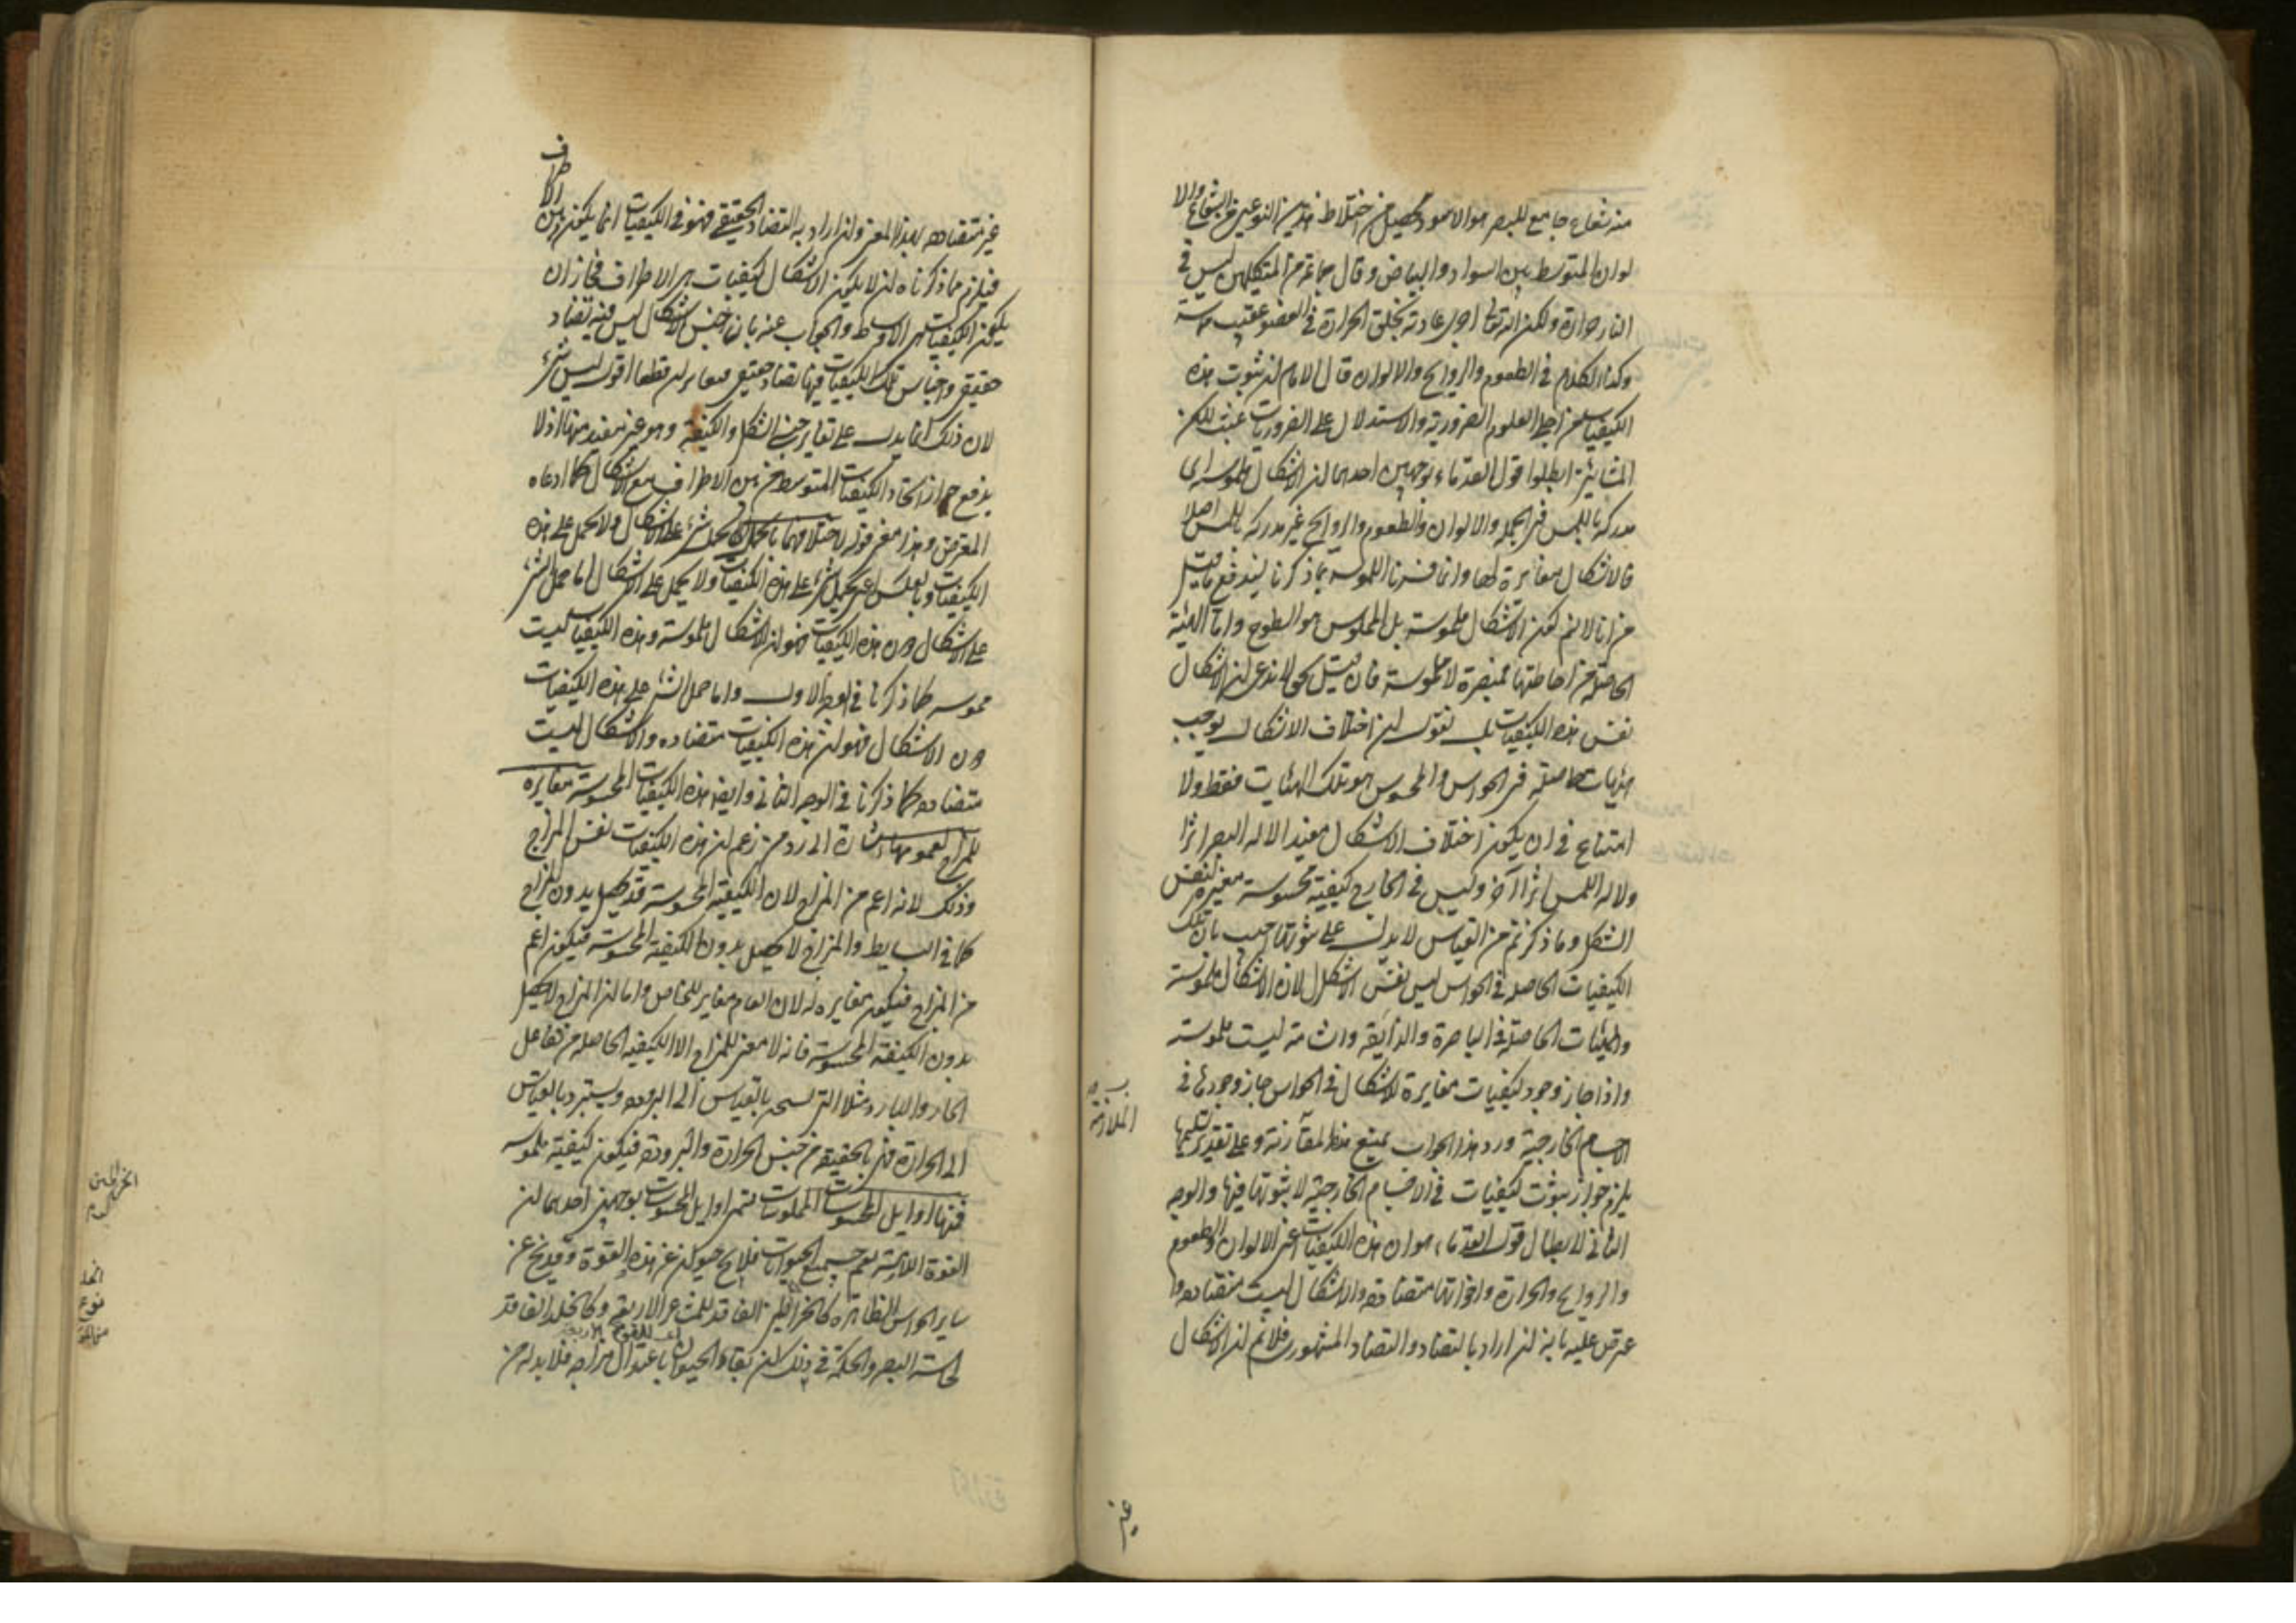 منه شعاع جامع للبصر هو الاسود ويحصل من اختلاط هذين النوعين من الشعاع الا
لوان المتوسط بين السواد والبياض وقال جماعة من المتكلمين ليس في
النار حرارة ولكن الله تعالى اجرى عادته بخلق الحرارة في العضو عقيب مماسته
وكذا الكلام في الطعوم والروايح والالوان قال الامام ان ثبوت هذه
الكيفيات من اجلى العلوم الضرورية والاستدلال على الضروريات عبث لكن
المشائين ابطلوا قول القدماء بوجهين احدهما ان الاشكال ملموسة اى
مدركة باللمس في الجملة والالوان والطعوم والروايح غير مدركة باللمس اصلا
فالاشكال مغايرة لها وانما فسرنا الملموسة بما ذكرنا ليندفع ما قيل
من انا لانم كون الاشكال ملموسة بل الملموس هو السطوح واما الهيئة
الحاصلة من احاطتها فمبصرة لا ملموسة فان قيل نحن لا ندعى ان الاشكال
نفس هذه الكيفيات بل نقول ان اختلاف الاشكال يوجب
هيئات حاصلة في الحواس والمحسوس هو تلك الهيئات فقط ولا
امتناع في ان يكون اختلاف الاشكال مفيدا لالة البصر اثرا
ولالة اللمس اثرا آخر وليس في الخارج كيفية محسوسة مغيرة لنفس
الشكل وما ذكرتم من القياس لا يدل على ثبوتها اجيب بان تلك
الكيفيات الحاصلة في الحواس ليس نفس الاشكال لان الاشكال ملموسة
والهيئات الحاصلة في الباصرة والذايقة والشامة ليست ملموسة
واذا جاز وجود كيفيات مغايرة للاشكال في الحواس جاز وجودها في
الاجسام الخارجية ورد هذا الجواب بمنع هذه الملازمة وعلى تقدير تسليمها
يلزم جواز ثبوت كيفيات في الاجسام الخارجية لا ثبوتها فيها والوجه
الثانى لابطال قول القدماء هو ان هذه الكيفيات اعنى الالوان والطعوم
والروايح والحرارة واخواتها متضادة والاشكال ليست متضادة وا
عترض عليه بانه ان اراد بالتضاد التضاد المشهورى فلانم ان الاشكال
الملازمة
غير
الاطراف
غير متضادة بهذا المعنى وان اراد به التضاد الحقيقي فهو في الكيفيات انما يكون بين
فيلزم مما ذكرناه ان لا يكون الاشكال كيفيات هى الاطراف فجاز ان
يكون الكيفيات هى الاوساط والجواب عنه بان جنس الاشكال ليس فيه تضاد
حقيقى واجناس تلك الكيفيات فيها تضاد حقيقى فيتغايران قطعا اقول ليس بشئ
لان ذلك انما يدل على تغاير جنس الشكل والكيفية وهو غير مفيد ههنا اذ لا
يدفع جواز اتحاد الكيفيات المتوسطة بين الاطراف مع الاشكال كما ادعاه
المعترض وهذا معنى قوله لاختلافهما بالحمل اى يحمل شئ على الاشكال ولا يحمل على هذه
الكيفيات وبالعكس اى يحمل شئ على هذه الكيفيات ولا يحمل على الاشكال اما حمل الشئ
على الاشكال دون هذه الكيفيات فهو ان الاشكال ملموسة وهذه الكيفيات ليست
ملموسة كما ذكرنا في الوجه الاول واما حمل الشئ على هذه الكيفيات
دون الاشكال فهو ان هذه الكيفيات متضادة والاشكال ليست
متضادة كما ذكرنا في الوجه الثانى وايضا هذه الكيفيات المحسوسة مغايرة
للمزاج لعمومها اشارة الى رد من زعم ان هذه الكيفيات نفس المزاج
وذلك لانه اعم من المزاج لان الكيفية المحسوسة قد يحصل بدون المزاج
كما في البسايط والمزاج لا يحصل بدون الكيفية المحسوسة فيكون اعم
من المزاج فيكون مغايرة له لان العام مغاير للخاص واما ان المزاج لا يحصل
بدون الكيفية المحسوسة فانه لا معنى للمزاج الا الكيفية الحاصلة من تفاعل
الحار والبارد مثلا التى تسخن بالقياس الى البرودة ويستبرد بالقياس
الى الحرارة فهى بالحقيقة من جنس الحرارة والبرودة فيكون كيفية ملموسة
فمنها اوايل المحسوسات الملموسات تسمى اوايل المحسوسات بوجهين احدهما ان
القوة اللامسة تعم جميع الحيوانات فلا يخ حيوان عن هذه القوة وقد يخ عن
ساير الحواس الظاهرة كالخراطين الفاقد للمشاعر الاربعة وكالخلد الفاقد
لحاسة البصر والحكمة في ذلك ان بقاء الحيوان باعتدال مزاجه فلا بد له من
الخراطين
الخلد
نوع